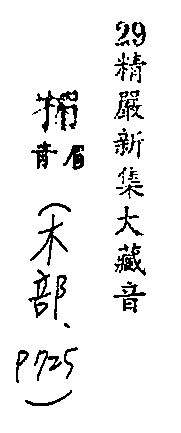 29精嚴新集大藏音
音眉
(木部、
P725)